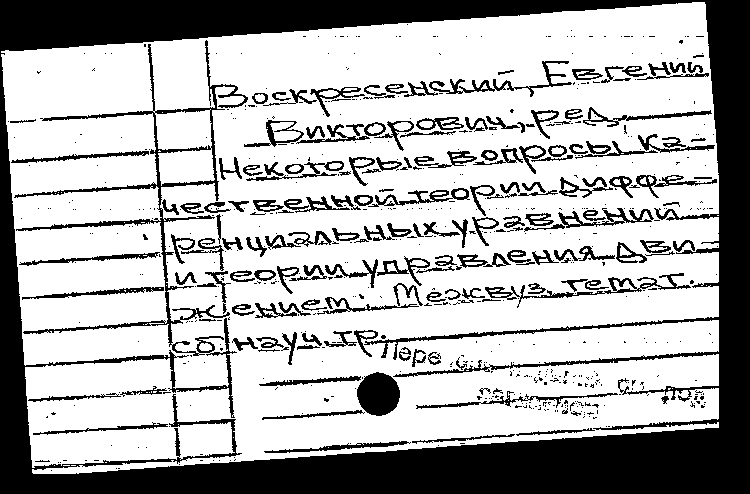 Воскресенский, Евгений
Викторович; ред.
Некоторые вопросы ка-
чественной теории диффе-
ренциальных уравнений
и теории управления дви-
жением: Межвуз. темат.
сб. науч. тр.
Пере см. под